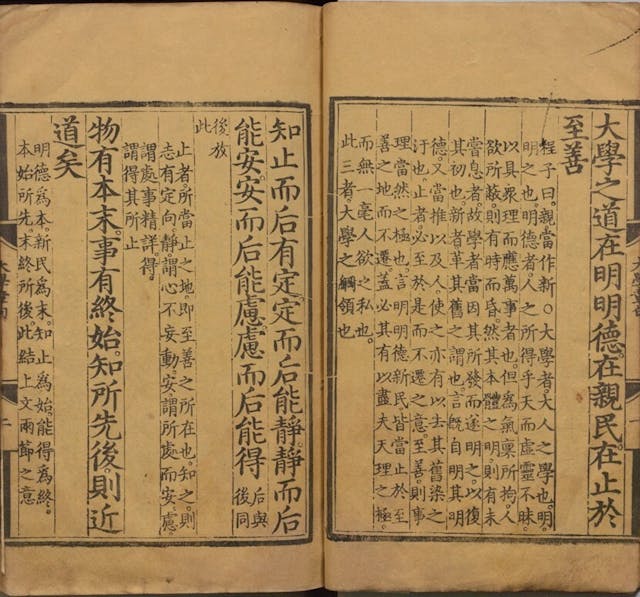 大學之道在明明德。在親民。在止於
至善
程子曰。親當作新。○大學者大人之學也。明。
明之也。明德者。人之所得乎天而虛靈不昧
以具眾理而應萬事者也。但為氣稟所拘。人
欲所蔽。則有時而昏。然其本體之明則有未
嘗息者。故學者當因其所發而遂明之。以復
其初也。新者革其舊之謂也。言既自明其明
德。又當推以及人使之亦有以去其舊染之
汙也。止者必至於是而不遷之意。至善則事
理當然之極也。言明明德新民皆當止於至
善之地而不遷。蓋必其有以盡夫天理之極。
而無一毫人欲之私也。
此三者。大學之綱領也。
知止而后有定。定而后能靜。靜而后
能安。安而后能慮。慮而后能得
后與
後同
後放
此
止者。所當止之地。即至善之所在也。知之。則
志有定向。靜謂心不妄動。安謂所處而安。慮
謂處事精詳。得
謂得其所止
物有本末。事有終始。知所先後。則近
道矣
明德為本。新民為末。知止為始。能得為終。
本始所先。末終所後。此結上文兩節之意